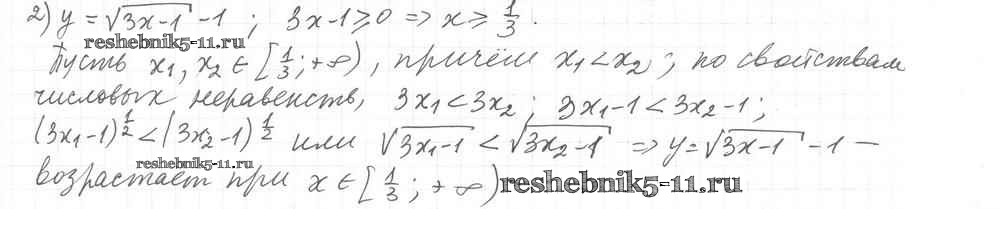 2) y = √(3x-1) - 1 ; 3x-1 ⩾ 0 => x ⩾ 1/3 .
reshebnik5-11.ru
Пусть x₁, x₂ ∈ [1/3; +∞), причём x₁ < x₂ ; по свойствам
числовых неравенств, 3x₁ < 3x₂ ; 3x₁-1 < 3x₂-1 ;
(3x₁-1)^(1/2) < (3x₂-1)^(1/2) или √(3x₁-1) < √(3x₂-1) => y = √(3x-1) - 1 —
reshebnik5-11.ru
возрастает при x ∈ [1/3; +∞) reshebnik5-11.ru